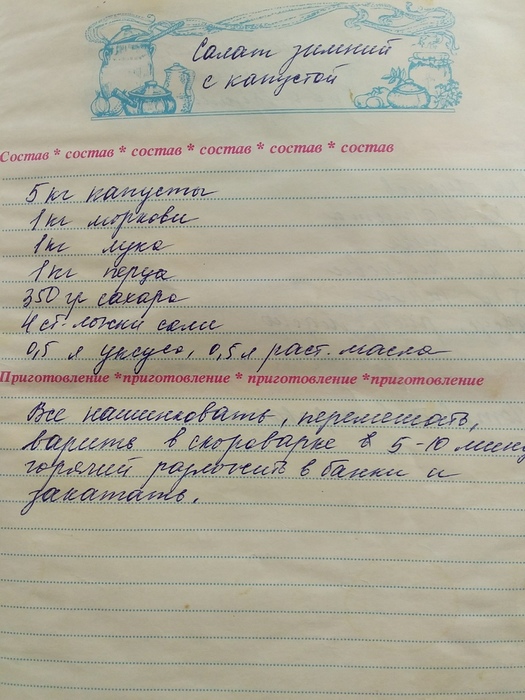 Салат зимний
с капустой
Состав * состав * состав * состав * состав * состав
5 кг капусты
1 кг моркови
1 кг лука
1 кг перца
350 гр сахара
4 ст. ложки соли
0,5 л уксуса, 0,5 л раст. масла
Приготовление *приготовление * приготовление *приготовление
Все нашинковать, перемешать,
варить в скороварке в 5-10 мину
горячий разложить в банки и
закатать.